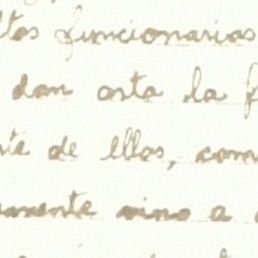 ltos funcionarias
dan esta la f
te de ellos, com
mente vino a